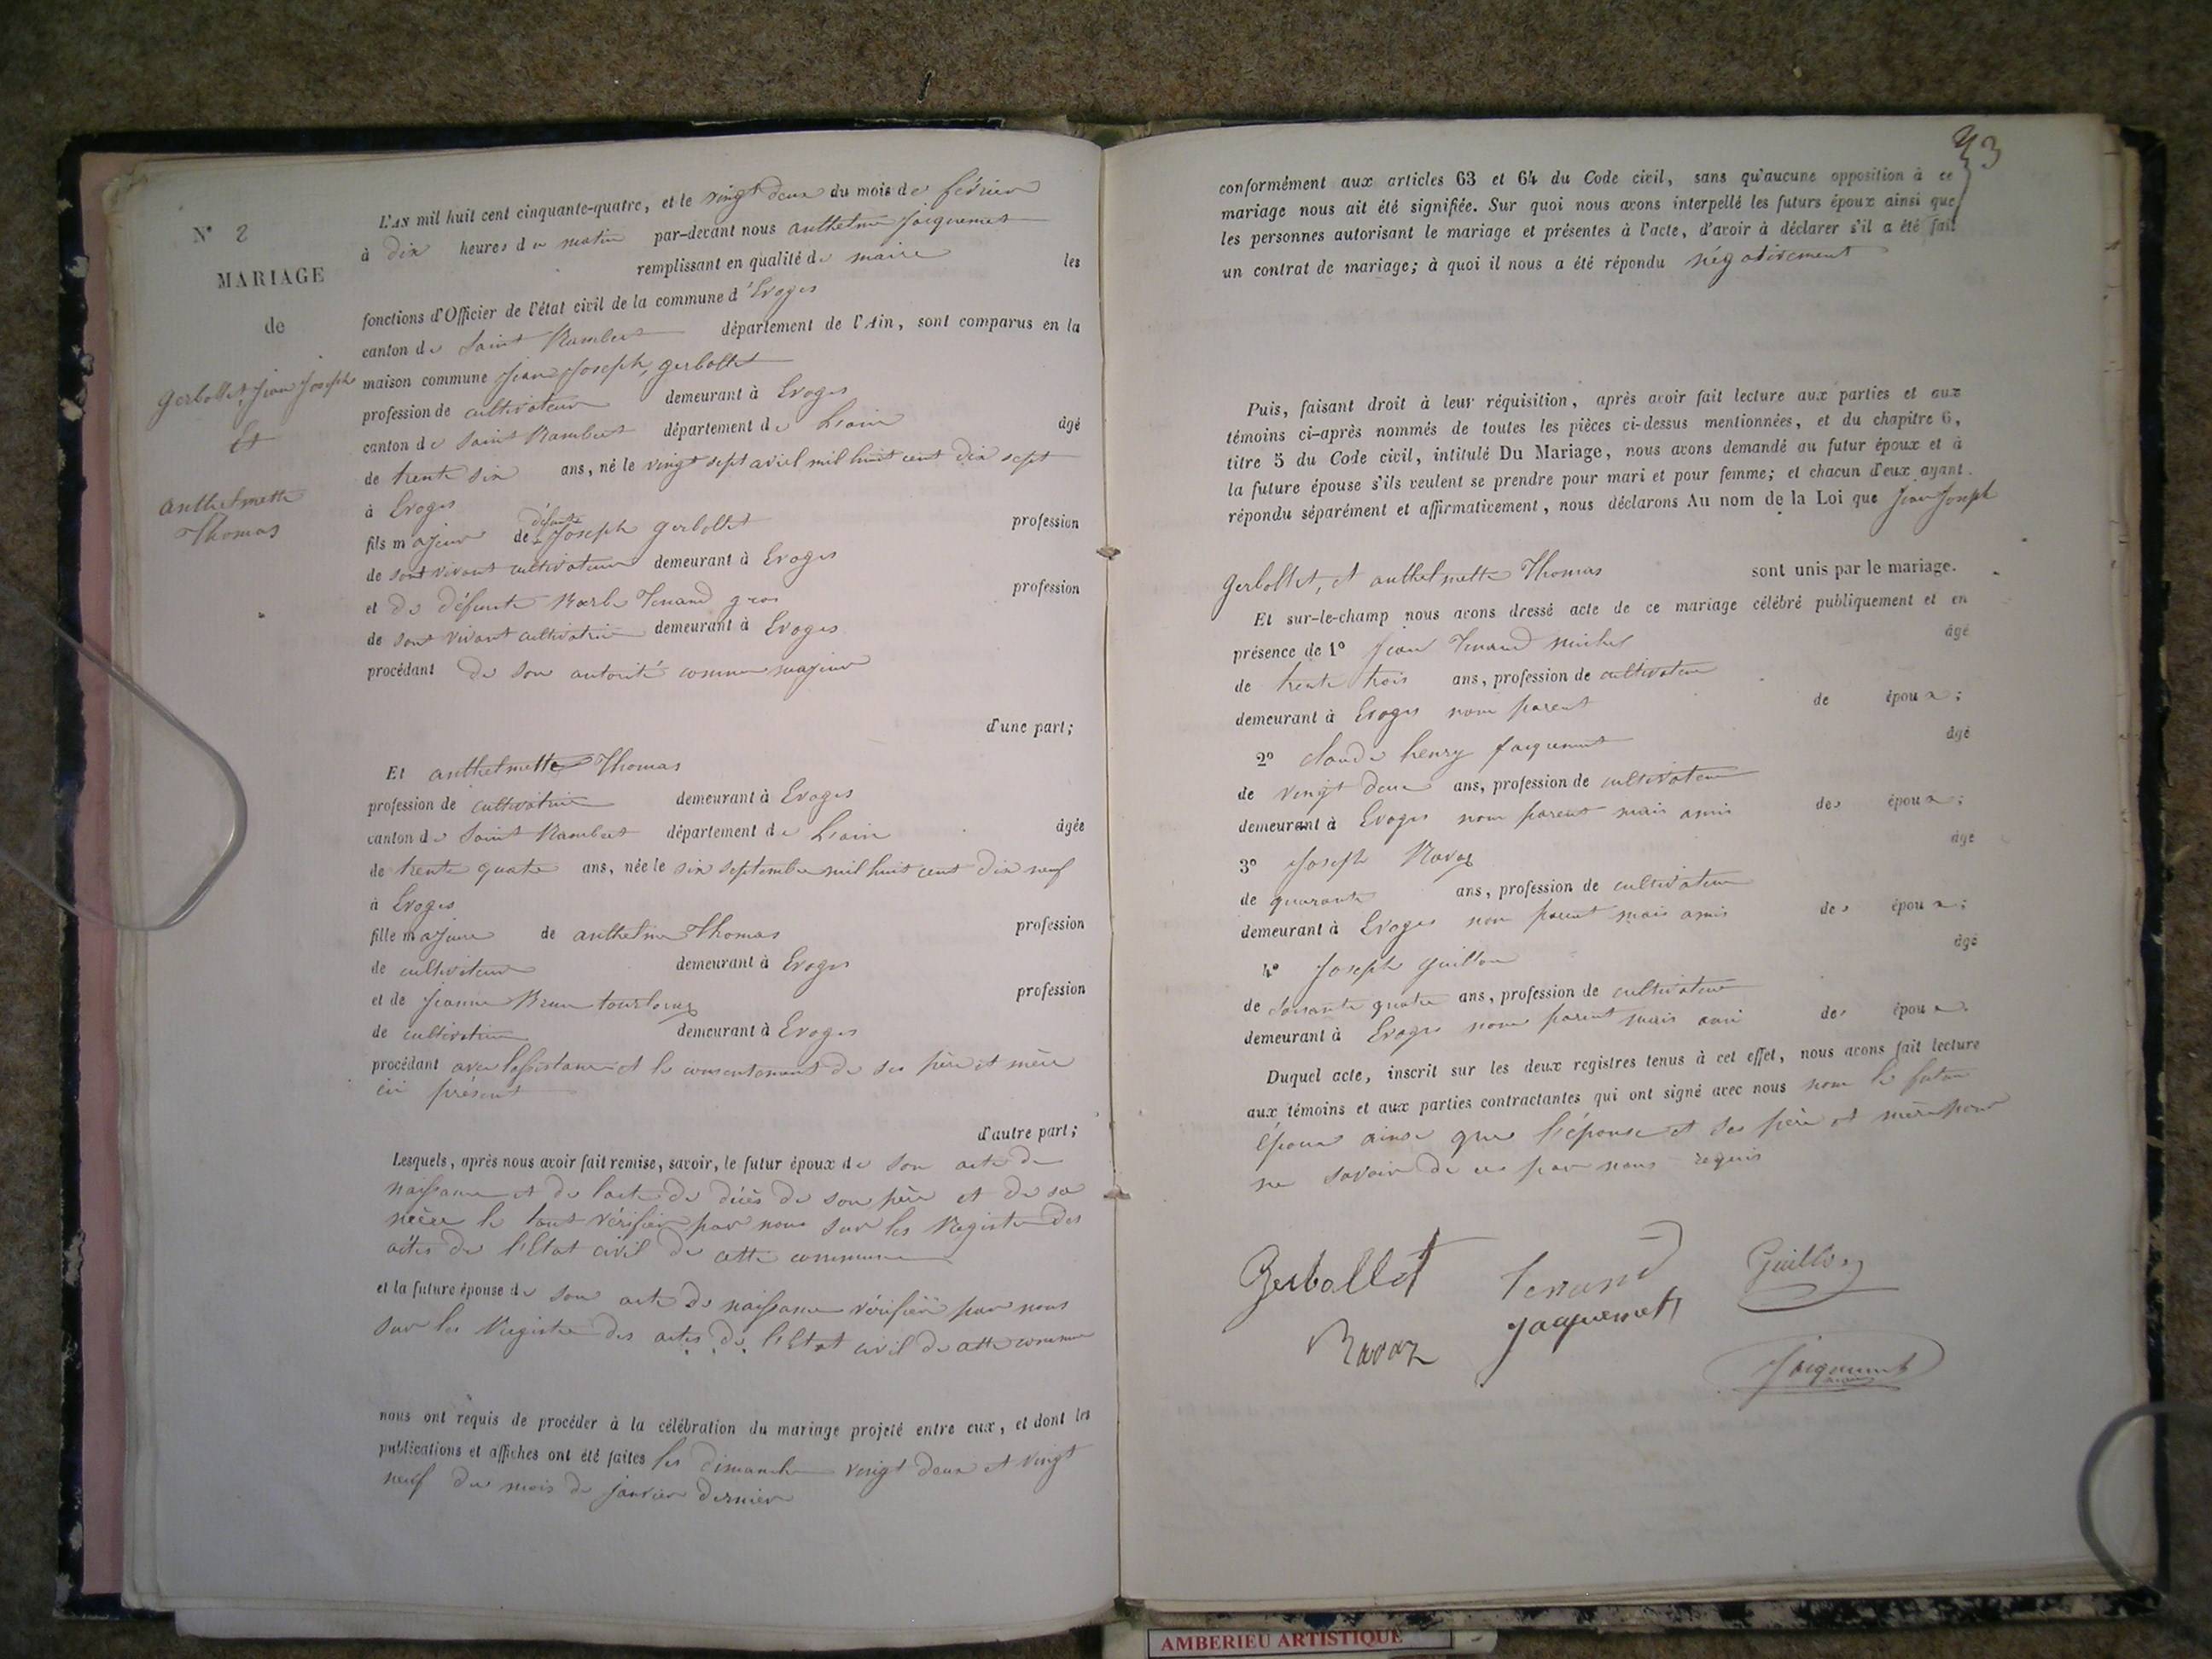 N° 2
MARIAGE
de
gerbollet, jean joseph
Et
anthelmette
Thomas
L'AN mil huit cent cinquante-quatre, et le vingt deux du mois de février
à dix heures du matin par-devant nous anthelme jacquemet
remplissant en qualité de maire les
fonctions d'Officier de l'état civil de la commune d'Evoges
canton de Saint Rambert département de l'Ain, sont comparus en la
maison commune Jean Joseph, gerbollet
profession de cultivateur demeurant à Evoges
canton de Saint Rambert département de Leain âgé
de trente six ans, né le vingt sept avril mil huit cent dix sept
à Evoges
fils majeur de défunt Joseph gerbollet profession
de sont vivant cultivateur demeurant à Evoges
et de défunte Marb Tenand gros profession
de sont vivant cultivatrice demeurant à Evoges
procédant de son autorité comme majeur
d'une part;
Et anthelmette Thomas
profession de cultivatrice demeurant à Evoges
canton de Saint Rambert département de Leain âgée
de trente quatre ans, née le six septembre mil huit cent dix neuf
à Evoges
fille majeure de anthelme Thomas profession
de cultivateur demeurant à Evoges
et de jeanne Brun profession
de cultivatrice demeurant à Evoges
procédant avec lassistance et le consentement de ses père et mère
ici présent
d'autre part;
Lesquels, après nous avoir fait remise, savoir, le futur époux de son acte de
naissance et de lacte de décès de son père et de sa
mère le tout vérifier par nous sur les Registre des
actes de l'Etat civil de cette commune
et la future épouse de son acte de naissance vérifiér par nous
sur les Registre des actes de l'Etat civil de cette commune
nous ont requis de procéder à la célébration du mariage projeté entre eux, et dont les
publications et affiches ont été faites les dimanche vingt deux et vingt
neuf du mois de janvier dernier
43
conformément aux articles 63 et 64 du Code civil, sans qu'aucune opposition à ce
mariage nous ait été signifiée. Sur quoi nous avons interpellé les futurs époux ainsi que
les personnes autorisant le mariage et présentes à l'acte, d'avoir à déclarer s'il a été fait
un contrat de mariage; à quoi il nous a été répondu négativement
Puis, faisant droit à leur réquisition, après avoir fait lecture aux parties et aux
témoins ci-après nommés de toutes les pièces ci-dessus mentionnées, et du chapitre 6,
titre 5 du Code civil, intitulé Du Mariage, nous avons demandé au futur époux et à
la future épouse s'ils veulent se prendre pour mari et pour femme; et chacun d'eux ayant
répondu séparément et affirmativement, nous déclarons Au nom de la Loi que Jean Joseph
gerbollet, et anthelmette Thomas sont unis par le mariage.
Et sur-le-champ nous avons dressé acte de ce mariage célébré publiquement et en
présence de 1° Jean Tenand michel âgé
de trente trois ans, profession de cultivateur
demeurant à Evoges non parent de époux;
2° claude henry jacquemet âgé
de vingt deux ans, profession de cultivateur
demeurant à Evoges non parent mais amis des époux;
3° Joseph Ravaz âgé
de quarante ans, profession de cultivateur
demeurant à Evoges non parent mais amis des époux;
4° Joseph guillon âgé
de soisante quatre ans, profession de cultivateur
demeurant à Evoges non parent mais ami des époux.
Duquel acte, inscrit sur les deux registres tenus à cet effet, nous avons fait lecture
aux témoins et aux parties contractantes qui ont signé avec nous non le futur
époux ainsi que l'épouse et ses père et mère pour
ne savoir de ce par nous requis
Gerbollet Tenand Guillon
Ravaz Jacquemet
Jacquemet
AMBERIEU ARTISTIQUE